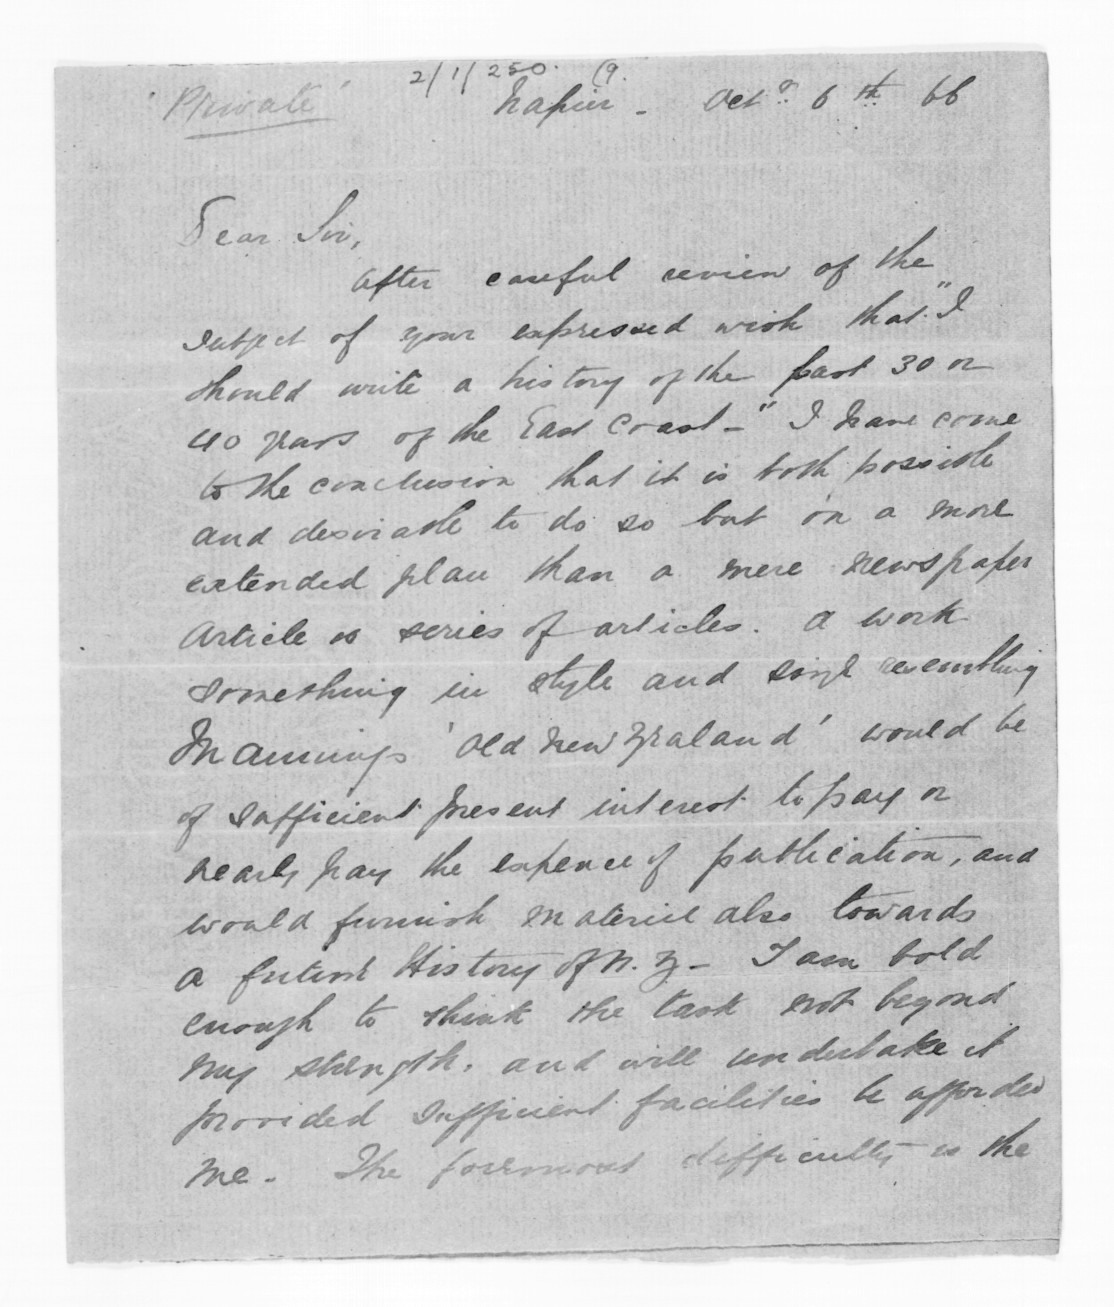 2/1/250. (9.
'Private' Napier - Octr 6th 66
Dear Sir,
After careful review of the
subject of your expressed wish that "I
should write a history of the past 30 or
40 years of the East Coast -" I have come
to the conclusion that it is both possible
and desirable to do so but on a more
extended plan than a mere newspaper
Article or series of articles. A work
something in style and size resembling
Mannings 'Old New Zealand' would be
of sufficient present interest to pay or
nearly pay the expence of publication, and
would furnish material also towards
a future History of N.Z - I am bold
enough to think the task not beyond
my strength, and will undertake it
provided sufficient facilities be afforded
me. The foremost difficulty is the